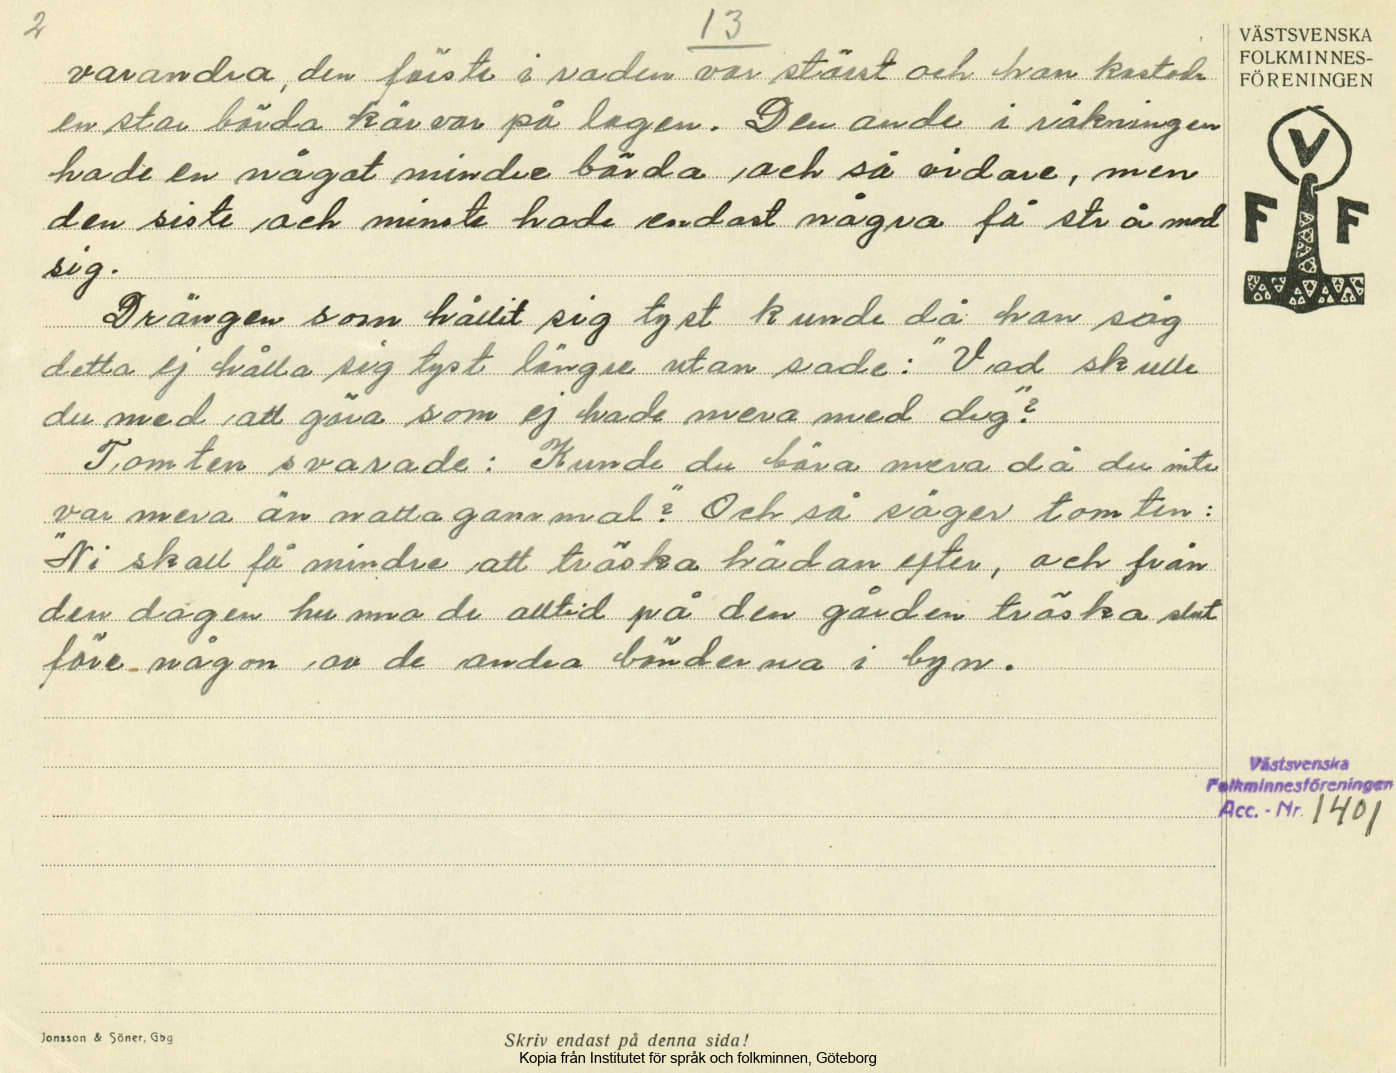 2
13
varandra, den förste i raden var störst och han kastade
en stor börda kärvar på logen. Den andre i räkningen
hade en något mindre börda, och så vidare, men
den siste och minste hade endast några få strå med
sig.
Drängen som hållit sig tyst kunde då han såg
detta ej hålla sig tyst längre utan sade: "Vad skulle
du med att göra som ej hade mera med dig"?
Tomten svarade: Kunde du bära mera då du inte
var mera än nattagammal"? Och så säger tomten:
"Ni skall få mindre att tröska hädan efter, och från
den dagen hunno de alltid på den gården tröska slut
före någon av de andra bönderna i byn.
VÄSTSVENSKA
FOLKMINNES-
FÖRENINGEN
V
F F
Västsvenska
Folkminnesföreningen
Acc. - Nr. 1401
Jonsson & Söner, Gbg
Skriv endast på denna sida!
Kopia från Institutet för språk och folkminnen, Göteborg